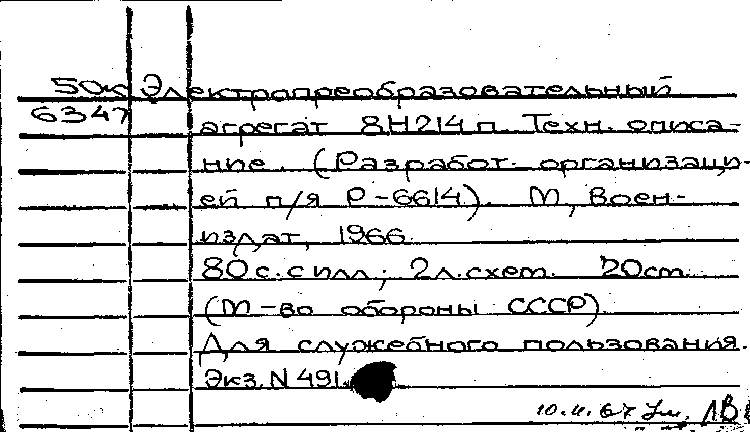 50к Электропреобразовательный
6347
агрегат 8Н214п. Техн. описа-
ние. (Разработ. организаци-
ей п/я Р-6614). М, Воен-
издат, 1966.
80 с. с илл; 2 л. схем. 20см.
(М-во обороны СССР)
Для служебного пользования.
Экз. N 491.